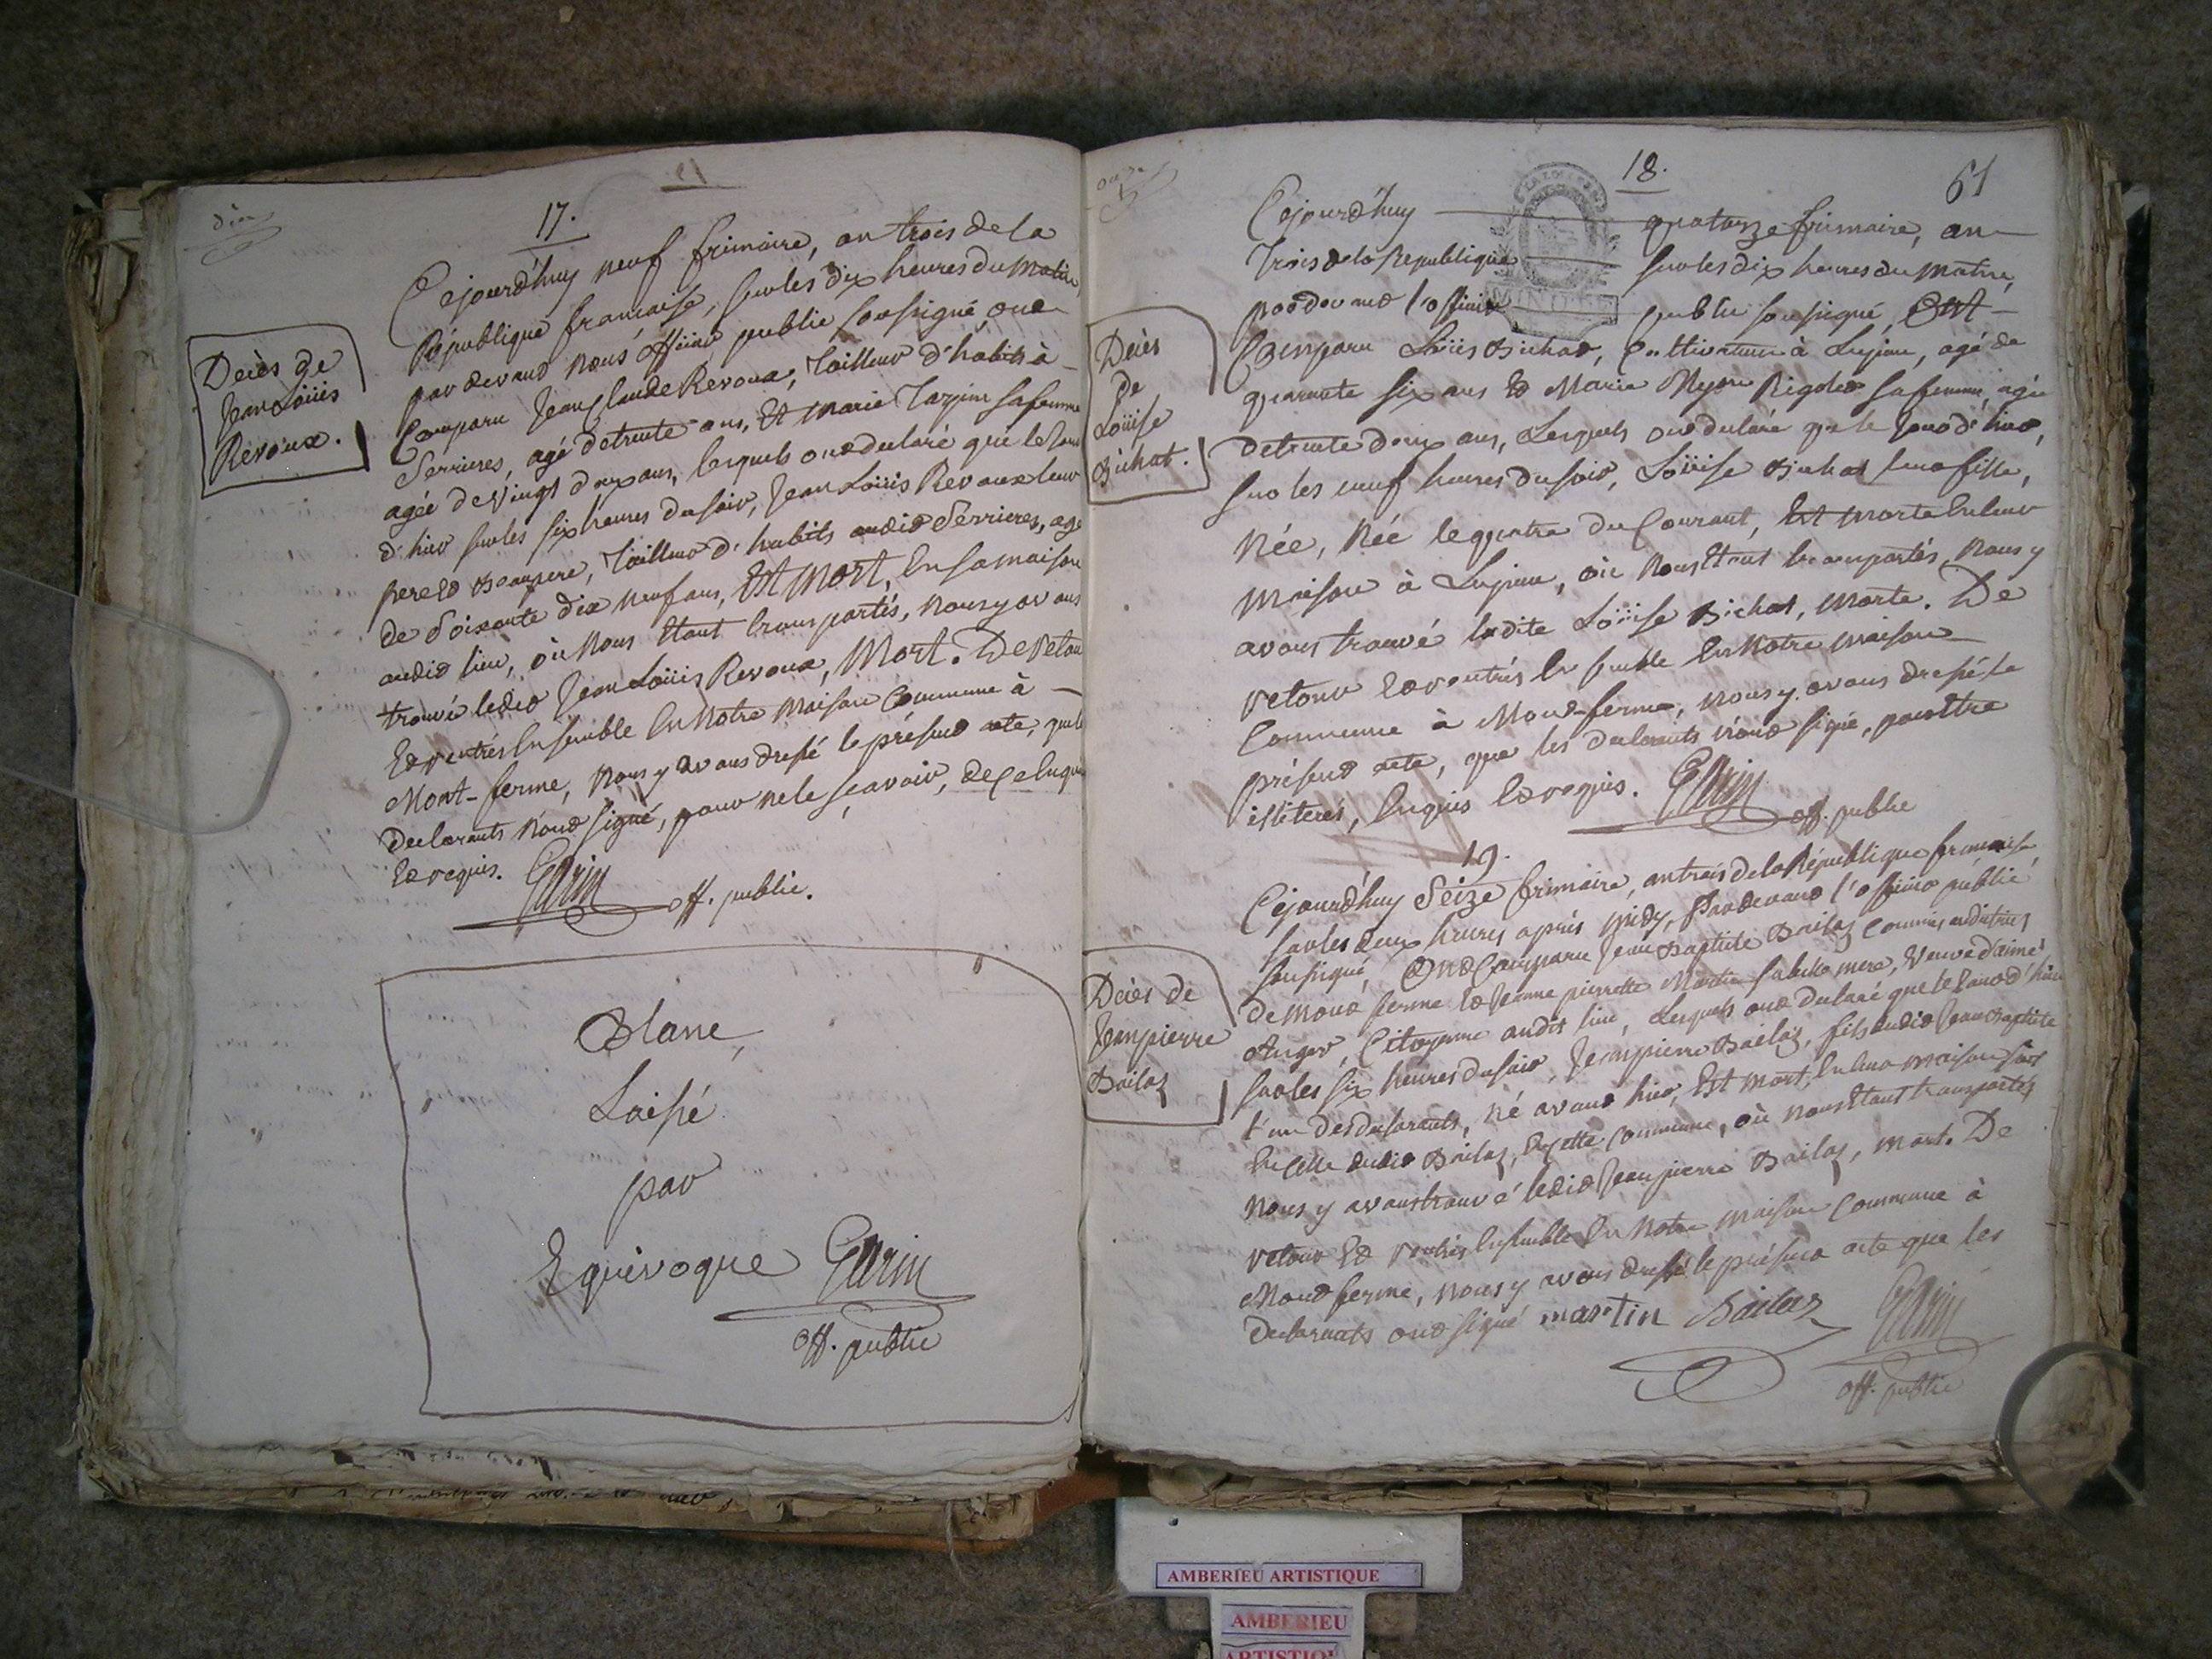 dix
17.
Cejourd'huy neuf frimaire, an trois de la
République francaise, sur les dix heures du matin,
par devant nous officier public soussigné, ont
Comparu Jean Claude Revoux, Tailleur d'habits à
Serrieres, agé de trente ans, Et Marie Tarjin sa femme
agée de vingt deux ans, lesquels ont declaré que le jour
d'hier sur les six heures du soir, Jean Loüis Revoux leur
pere et Beaupere, Tailleur d'habits audit Serrieres, agé
de Soixante dix neuf ans, Est Mort, En sa maison
audit lieu, où nous Etant transportés, nous y avons
trouvé ledit Jean Loüis Revoux, Mort. De retour
Et rentrés Ensemble En Notre Maison Commune à
Mont-ferme, nous y avons dressé le présent acte, que les
declarants n'ont signé, pour ne le sçavoir, de ce Enquis
Et requis. Garin off. public.
Decès de
Jean Loüis
Revoux.
Blanc,
Laissé
par
Equivoque Garin
off. public
onze
18.
61
Cejourd'huy quatorze frimaire, an
Trois de la Republique sur les dix heures du matin,
pardevant l'officier public soussigné, Ont
Comparu Loüis Bichat, Cultivateur à Lupieu, agé de
quarante six ans Et Marie Rigolet sa femme, agée
de trente deux ans, Lesquels ont declaré que le jour d'hier,
sur les neuf heures du soir, Loüise Bichat leur fille,
Née, Née le quatre du Courant, Est morte En leur
Maison à Lupieu, où nous Etant transportés, nous y
avons trouvé ladite Loüise Bichat, Morte. De
retour Et rentrés En semble En Notre Maison
Commune à Mont-ferme, nous y avons dressé le
présent acte, que les declarants n'ont signé, pour Etre
illiterés, Enquis Et requis. Garin
off. public
Decès
de
Loüise
Bichat.
19.
Cejourd'huy Seize frimaire, an trois de la République francaise
sur les deux heures après midy, Pardevant l'officier public
soussigné, Ont Comparu Jean Baptiste Bailaz Commis au district
de Mont ferme Et Jeanne pierrette Martin sa belle mere, Veuve d'aimé
Anger, Citoyenne audit lieu, Lesquels ont declaré que le jour d'hier
sur les six heures du soir, Jean pierre Bailaz, fils dudit Jean Baptiste
l'un des declarants, né avant hier, Est mort, En leur maison
En celle dudit Bailaz, En cette Commune, où nous Etant transportés
nous y avons trouvé ledit Jean pierre Bailaz, mort. De
retour Et rentrés Ensemble En Notre maison Commune à
Mont ferme, nous y avons dressé le présent acte que les
declarants ont signé martin Bailaz Garin
off. public
Decès de
Jean pierre
Bailaz
AMBERIEU ARTISTIQUE
AMBERIEU